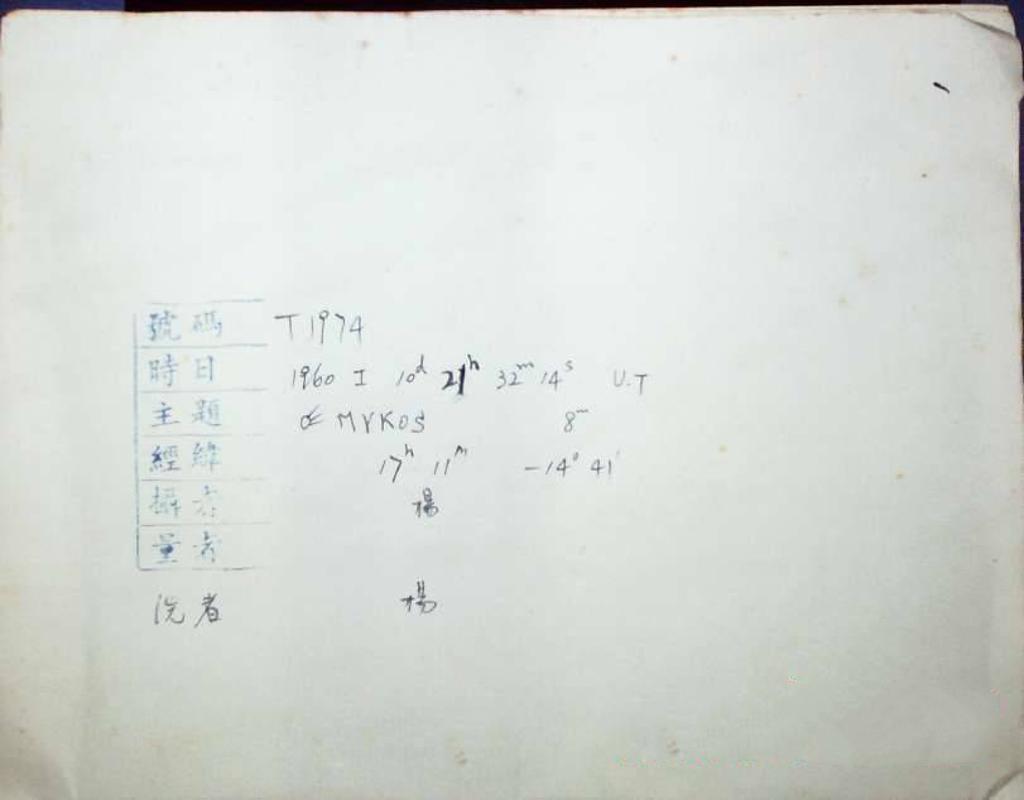 號碼 T1974
時日 1960 I 10d 21h 32m 14s U.T
主題 MYKOS 8m
經緯 17h 11m -14° 41'
攝者 楊
量者
洗者 楊